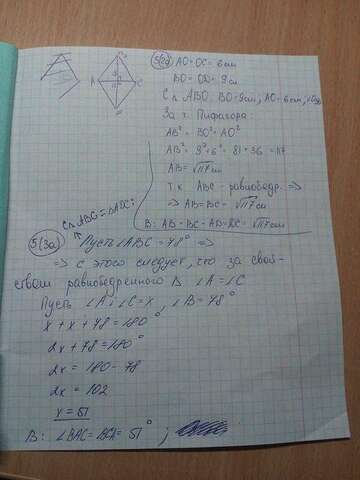 5(2а) AO = OC = 6 см
BO = OD = 9 см
С △ ABO: BO=9см, AO=6см,
За т. Пифагора:
AB² = BO² + AO²
AB² = 9² + 6² = 81 + 36 = 117
AB = √117 см
Т.к. ABC - равнобедр. =>
=> AB = BC = √117 см
В: AB = BC = AD = DC = √117 см
С △ ABC = △ ADC:
5(3а) Пусть ∠ABC = 78° =>
=> с этого следует, что за свой-
ством равнобедренного ∠A = ∠C
Пусть ∠A и ∠C = x, ∠B = 78°
x + x + 78 = 180°
2x + 78 = 180°
2x = 180 - 78
2x = 102
x = 51
В: ∠BAC = ∠BCA = 51°;
A
B
C